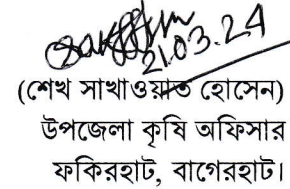 21.03.24
(শেখ সাখাওয়াত হোসেন)
উপজেলা কৃষি অফিসার
ফকিরহাট, বাগেরহাট।